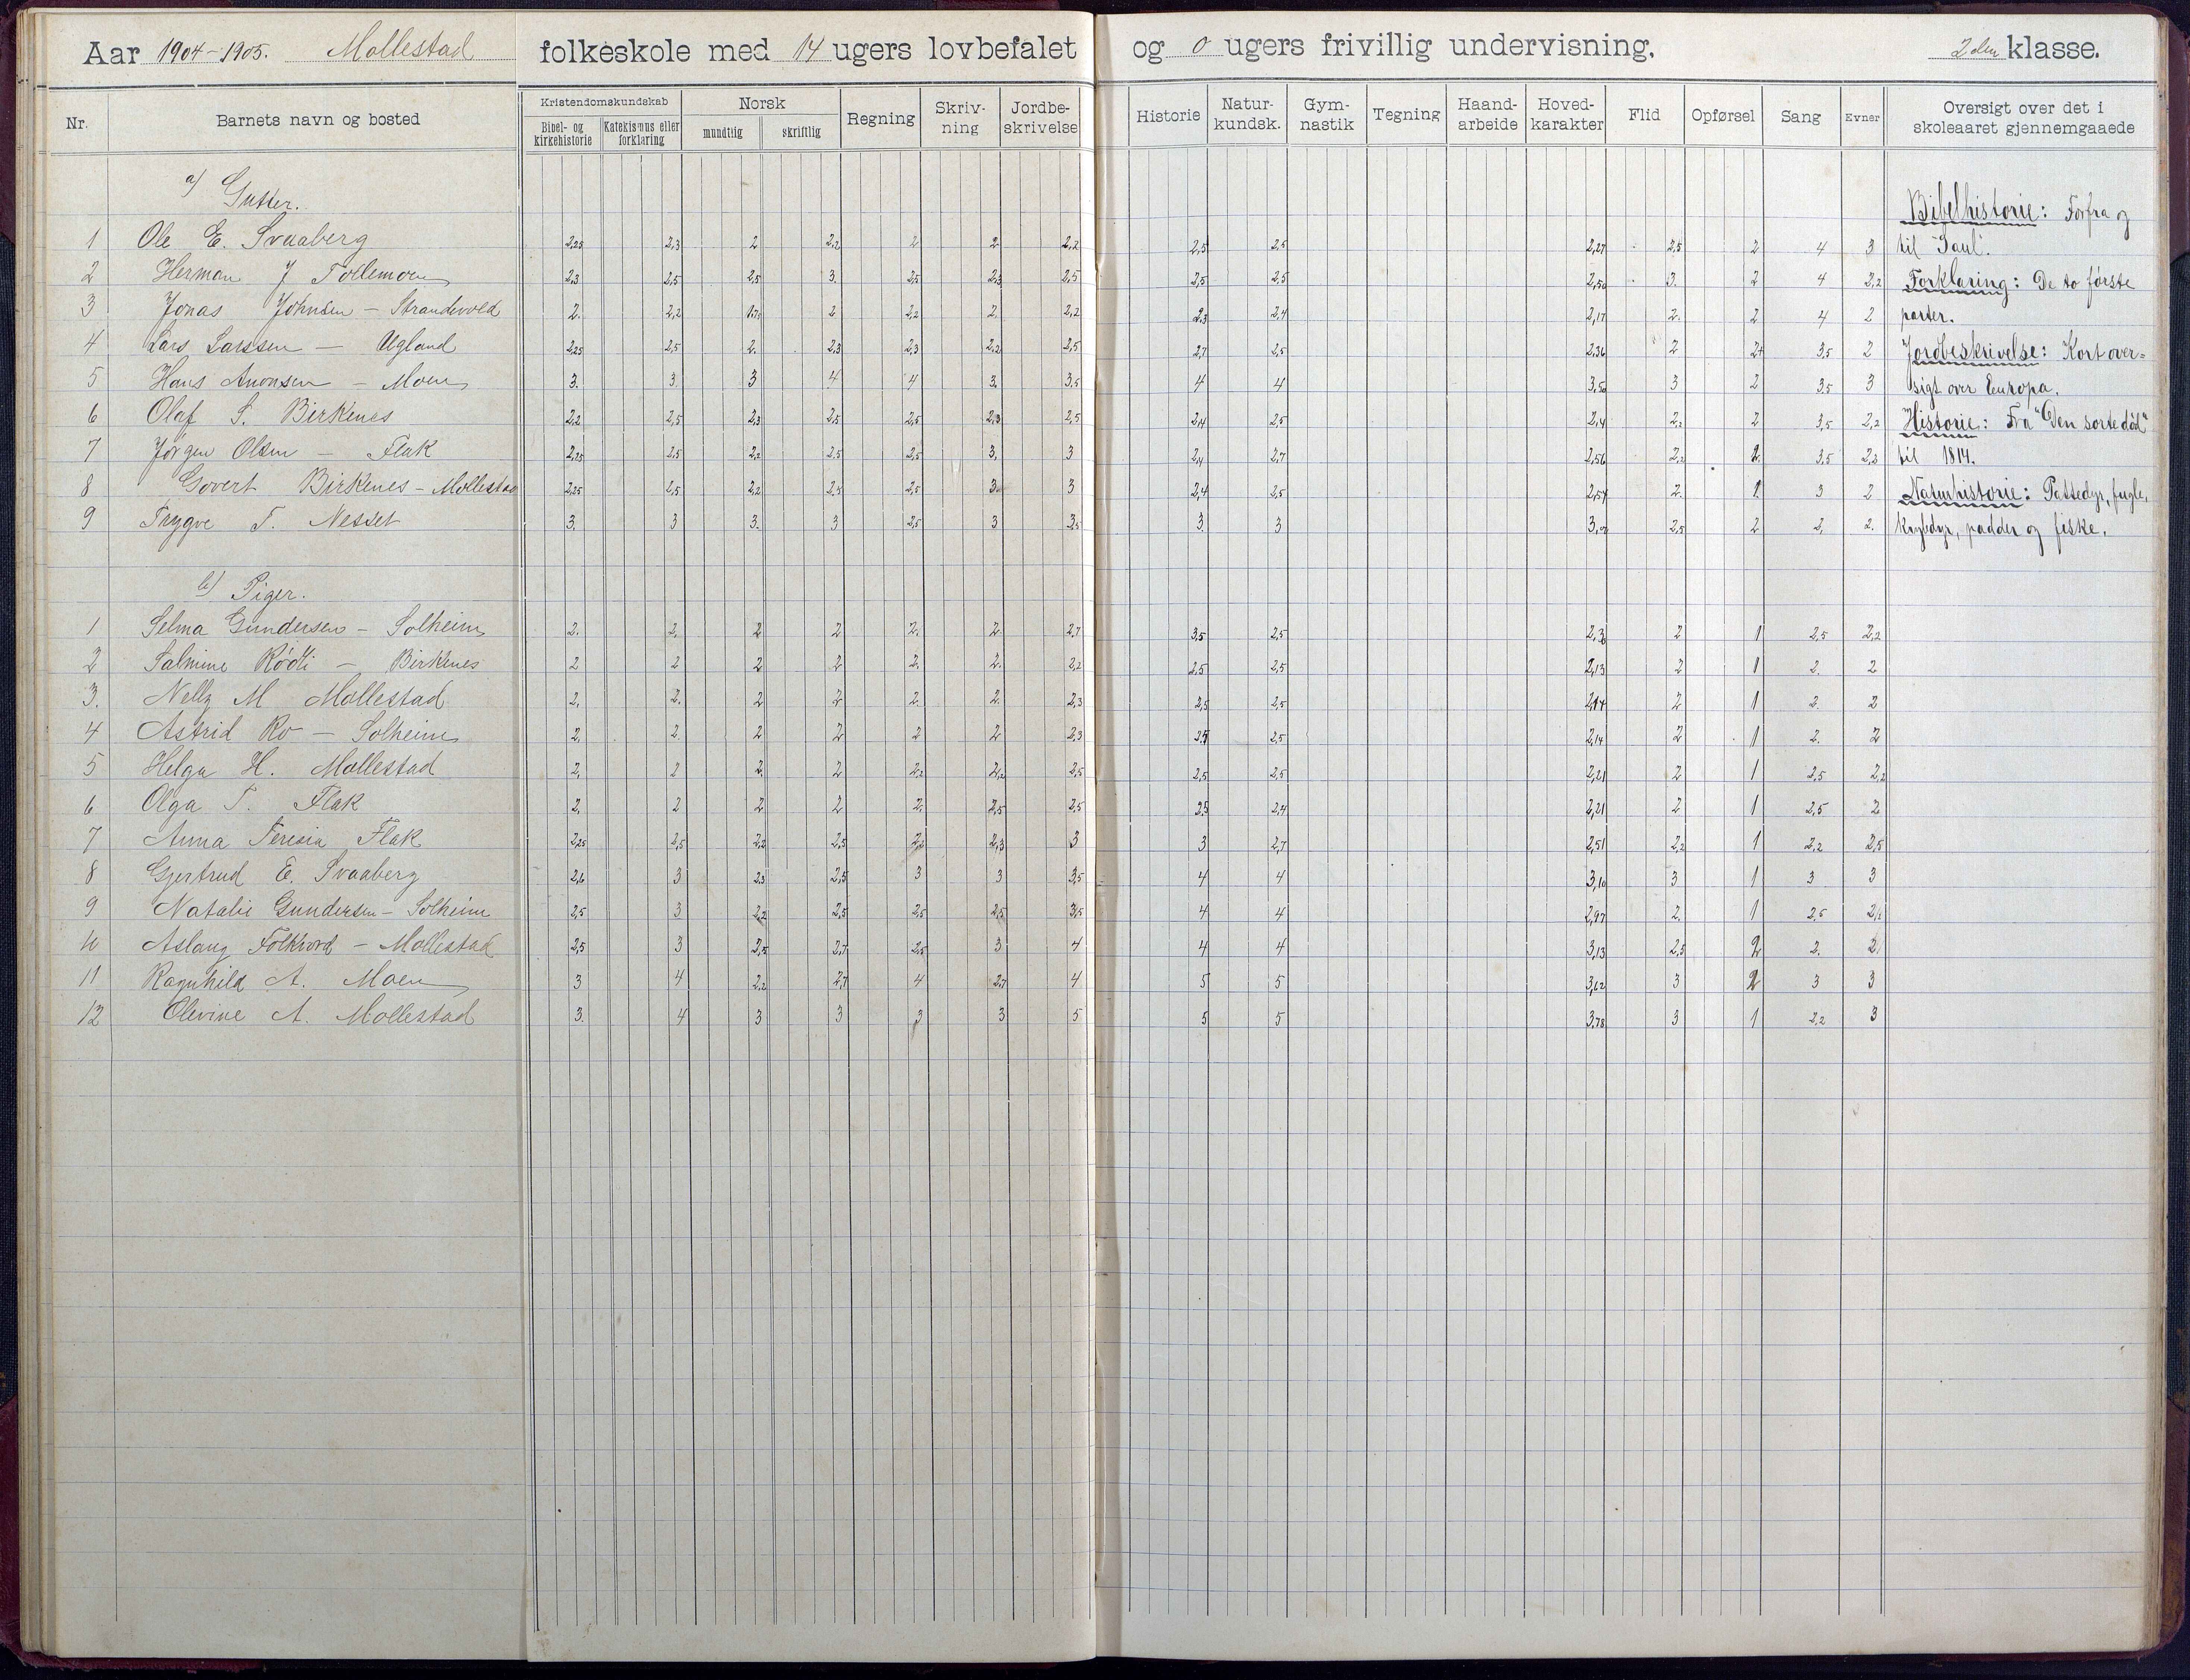 Aar 1904-1905. Mollestad folkeskole med 14 ugers lovbefalet og 0 ugers frivillig undervisning. 2den klasse.
Nr. Barnets navn og bosted Kristendomskundskab Norsk Regning Skriv-ning Jordbe-skrivelse Historie Natur-kundsk. Gym-nastik Tegning Haand-arbeide Hoved-karakter Flid Opførsel Sang Evner Oversigt over det i skoleaaret gjennemgaaede
Bibel- og kirkehistorie Katekismus eller forklaring mundtlig skriftlig
a) Gutter.
1 Ole E. Svaaberg 2,25 2,3 2 2,2 2 2 2,2 2,5 2,5 2,27 2,5 2 4 3
2 Herman J Tollemoen 2,3 2,5 2,5 3. 2,5 2,3 2,5 2,5 2,5 2,50 3. 2 4 2,2
3 Jonas Johnsen - Strandevold 2. 2,2 1,7 2 2,2 2. 2,2 2,3 2,4 2,17 2. 2 4 2
4 Lars Larssen - Ugland 2,25 2,5 2. 2,3 2,3 2,2 2,5 2,7 2,5 2,36 2 2+ 3,5 2
5 Hans Anonsen - Moen 3. 3 3 4 4 3. 3,5 4 4 3,50 3 2 3,5 3
6 Olaf S. Birkenes 2,2 2,5 2,3 2,5 2,5 2,3 2,5 2,4 2,5 2,4 2,2 2 3,5 2,2
7 Jørgen Olsen - Flak 2,25 2,5 2,2 2,5 2,5 3. 3 2,4 2,7 2,56 2,2 2. 3,5 2,3
8 Govert Birkenes - Mollestad 2,25 2,5 2,2 2,5 2,5 3. 3 2,4 2,5 2,54 2. 1. 3 2
9 Trygve T. Nesset 3. 3 3. 3 2,5 3 3,5 3. 3 3,00 2,5 2 2. 2.
b) Piger.
1 Selma Gundersen - Solheim 2. 2. 2 2 2. 2. 2,7 3,5 2,5 2,3 2 1 2,5 2,2
2 Salmine Rødli - Birkenes 2 2 2 2 2. 2. 2,2 2,5 2,5 2,13 2 1 2. 2
3. Nelly M Mollestad 2. 2. 2 2 2. 2. 2,3 2,5 2,5 2,14 2 1 2. 2
4 Astrid Ro - Solheim 2. 2. 2 2 2 2 2,3 2,5 2,5 2,14 2 1 2. 2
5 Helga H. Mollestad 2. 2 2. 2 2,2 2,2 2,5 2,5 2,5 2,21 2 1 2,5 2,2
6 Olga T. Flak 2. 2 2 2 2. 2,5 2,5 2,5 2,4 2,21 2 1 2,5 2
7 Anna Teresia Flak 2,25 2,5 2,2 2,5 2,2 2,3 3 3 2,7 2,51 2,2 1 2,2 2,5
8 Gjertrud E. Svaaberg 2,6 3 2,3 2,5 3 3 3,5 4 4 3,10 3 1 3 3
9 Natalie Gundersen - Solheim 2,5 3 2,2 2,5 2,5 2,5 3,5 4 4 2,97 2. 1 2,5
10 Aslaug Folkvord - Mollestad 2,5 3 2,5 2,7 2,5 3 4 4 4 3,13 2,5 2 2. 2
11 Ragnhild A. Moen 3 4 2,2 2,7 4 2,7 4 5 5 3,62 3 2 3 3
12 Olevine A. Mollestad 3. 4 3 3 3 3 5 5 5 3,78 3 1 2,2 3
Bibelhistorie: Forfra og
til "Saul".
Forklaring: De to første
parter.
Jordbeskrivelse: Kort over=
sigt over Europa.
Historie: Fra "Den sorte død"
til 1814.
Naturhistorie: Pattedyr, fugle,
krybdyr, padder og fiske.